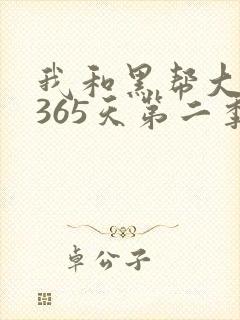 我和黑帮大
365天第二季
卓公子